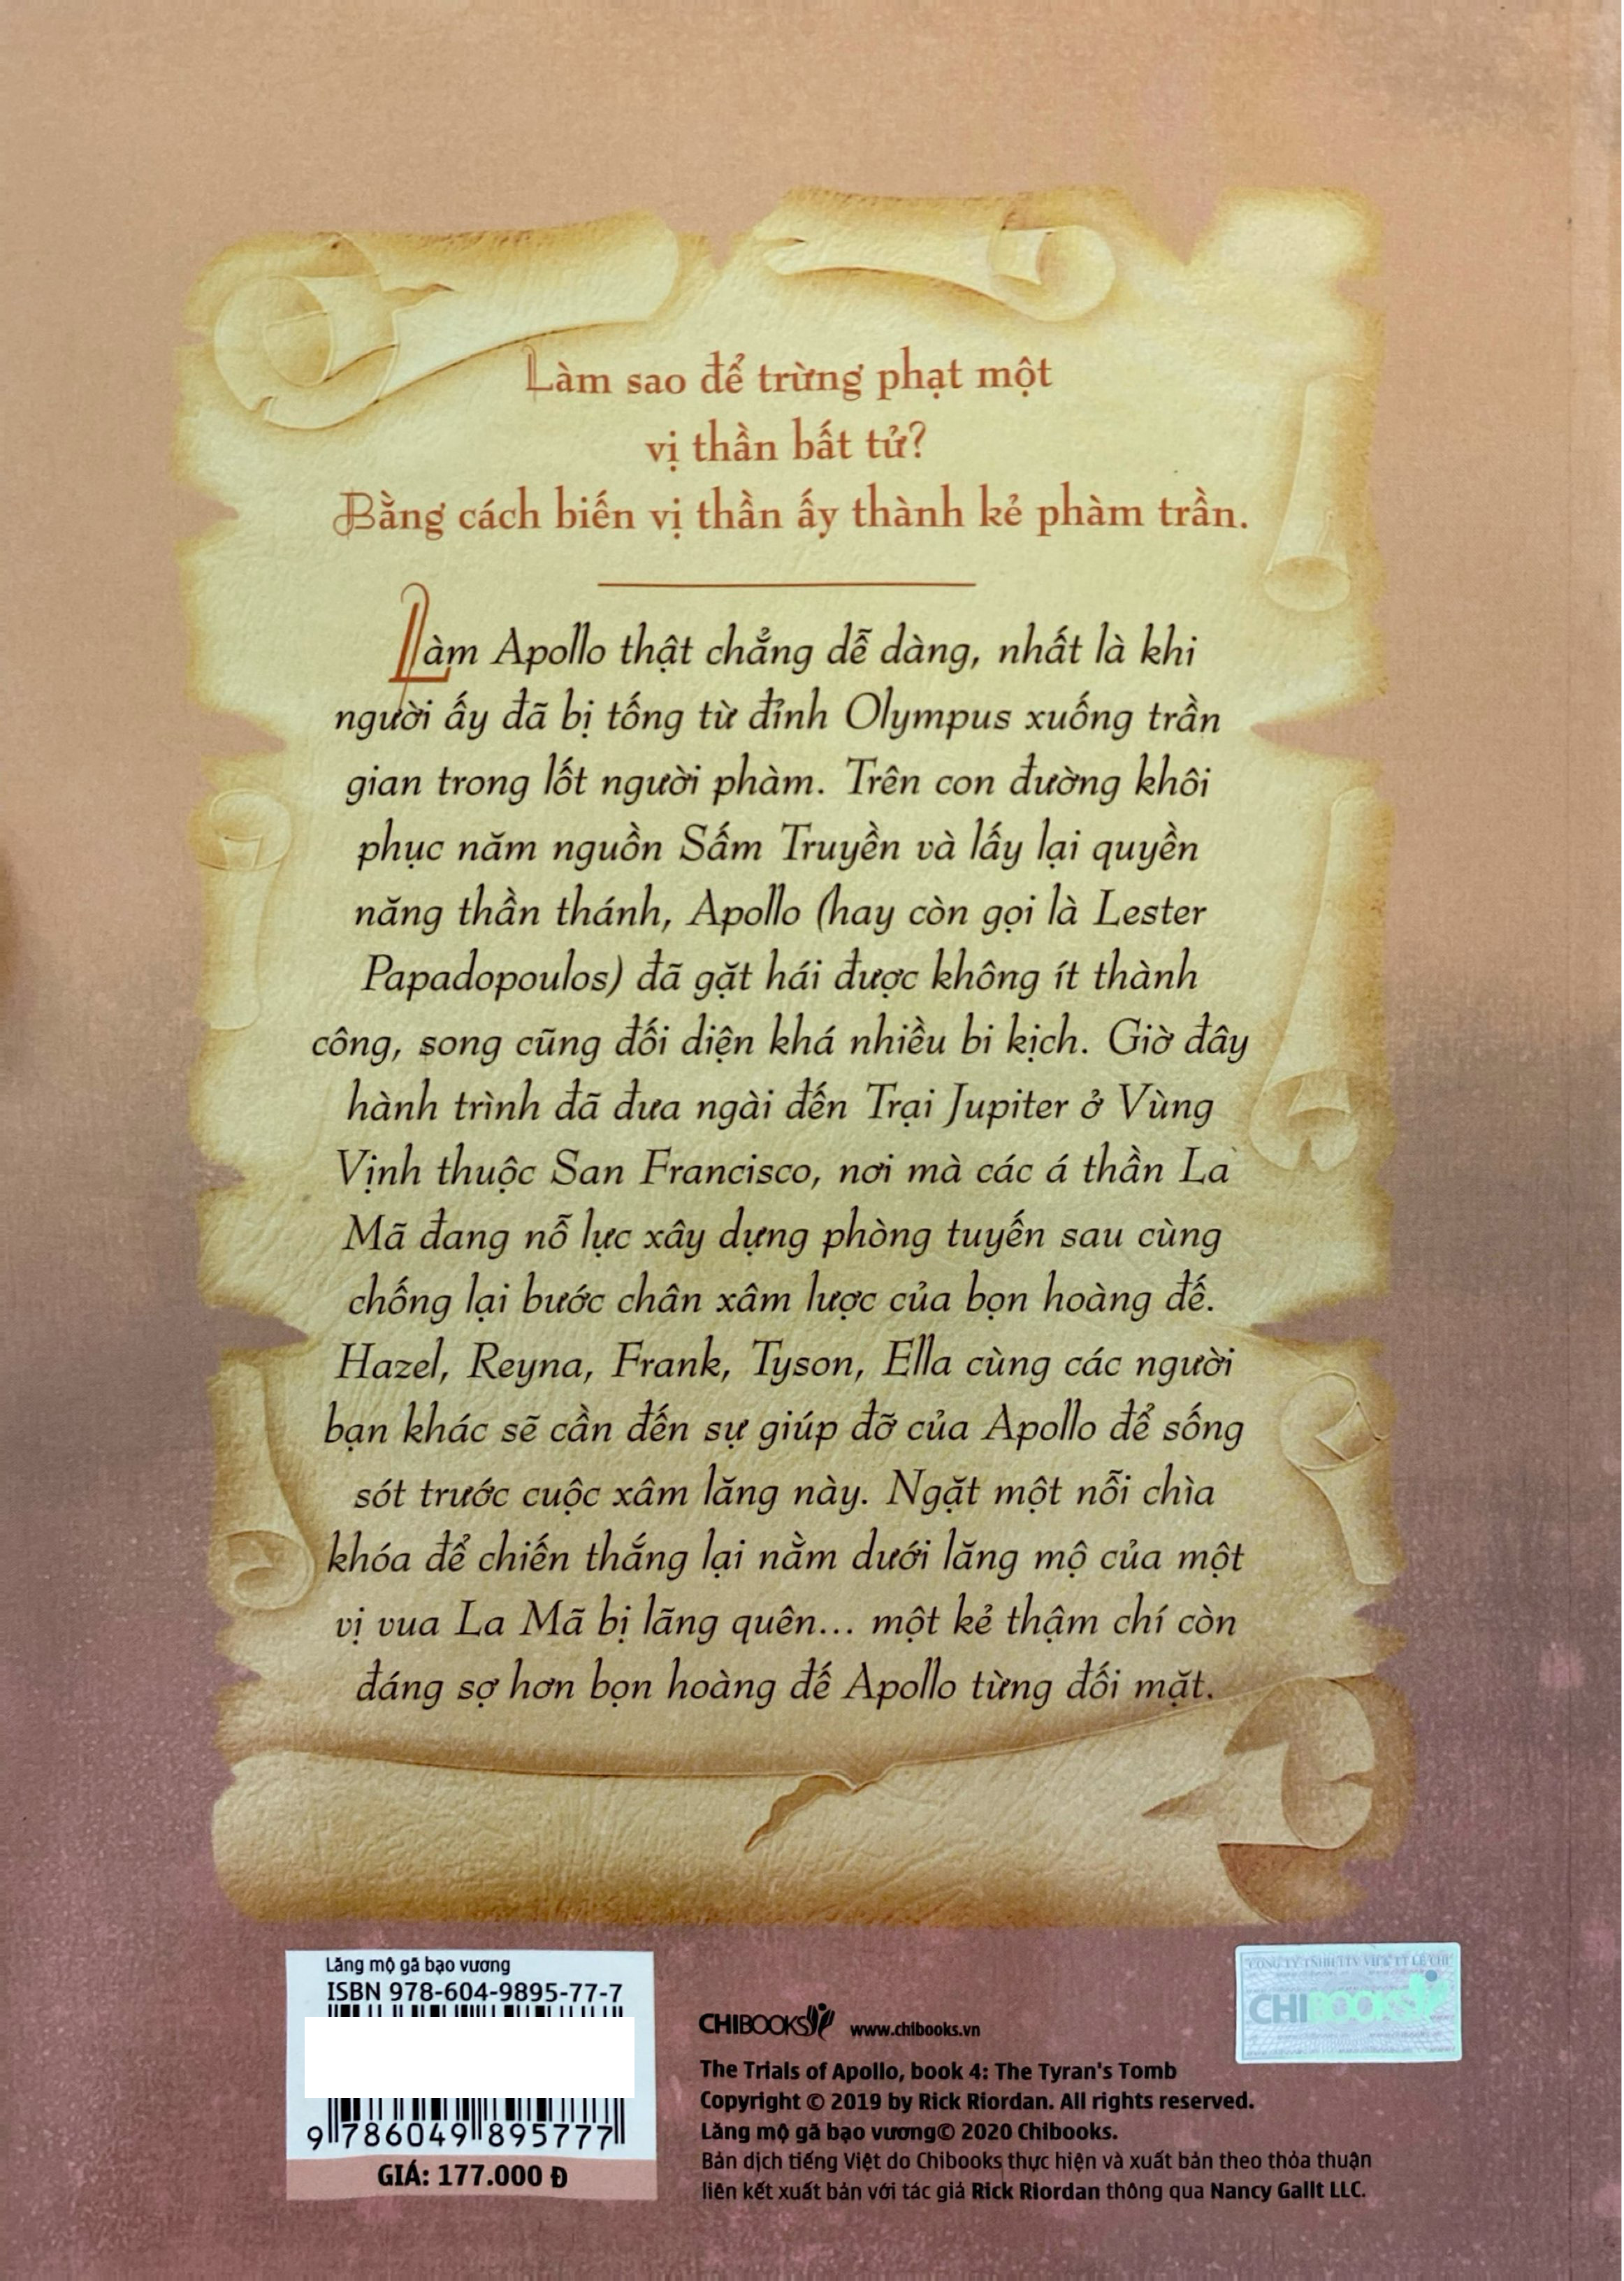 Làm sao để trừng phạt một
vị thần bất tử?
Bằng cách biến vị thần ấy thành kẻ phàm trần.
Làm Apollo thật chẳng dễ dàng, nhất là khi
người ấy đã bị tống từ đỉnh Olympus xuống trần
gian trong lốt người phàm. Trên con đường khôi
phục năm nguồn Sấm Truyền và lấy lại quyền
năng thần thánh, Apollo (hay còn gọi là Lester
Papadopoulos) đã gặt hái được không ít thành
công, song cũng đối diện khá nhiều bi kịch. Giờ đây
hành trình đã đưa ngài đến Trại Jupiter ở Vùng
Vịnh thuộc San Francisco, nơi mà các á thần La
Mã đang nỗ lực xây dựng phòng tuyến sau cùng
chống lại bước chân xâm lược của bọn hoàng đế.
Hazel, Reyna, Frank, Tyson, Ella cùng các người
bạn khác sẽ cần đến sự giúp đỡ của Apollo để sống
sót trước cuộc xâm lăng này. Ngặt một nỗi chìa
khóa để chiến thắng lại nằm dưới lăng mộ của một
vị vua La Mã bị lãng quên... một kẻ thậm chí còn
đáng sợ hơn bọn hoàng đế Apollo từng đối mặt.
Lăng mộ gã bạo vương
ISBN 978-604-9895-77-7
9 786049 895777
GIÁ: 177.000 Đ
CHIBOOKS www.chibooks.vn
The Trials of Apollo, book 4: The Tyran's Tomb
Copyright © 2019 by Rick Riordan. All rights reserved.
Lăng mộ gã bạo vương© 2020 Chibooks.
Bản dịch tiếng Việt do Chibooks thực hiện và xuất bản theo thỏa thuận
liên kết xuất bản với tác giả Rick Riordan thông qua Nancy Gallt LLC.
CÔNG TY TNHH
CHIBOOKS